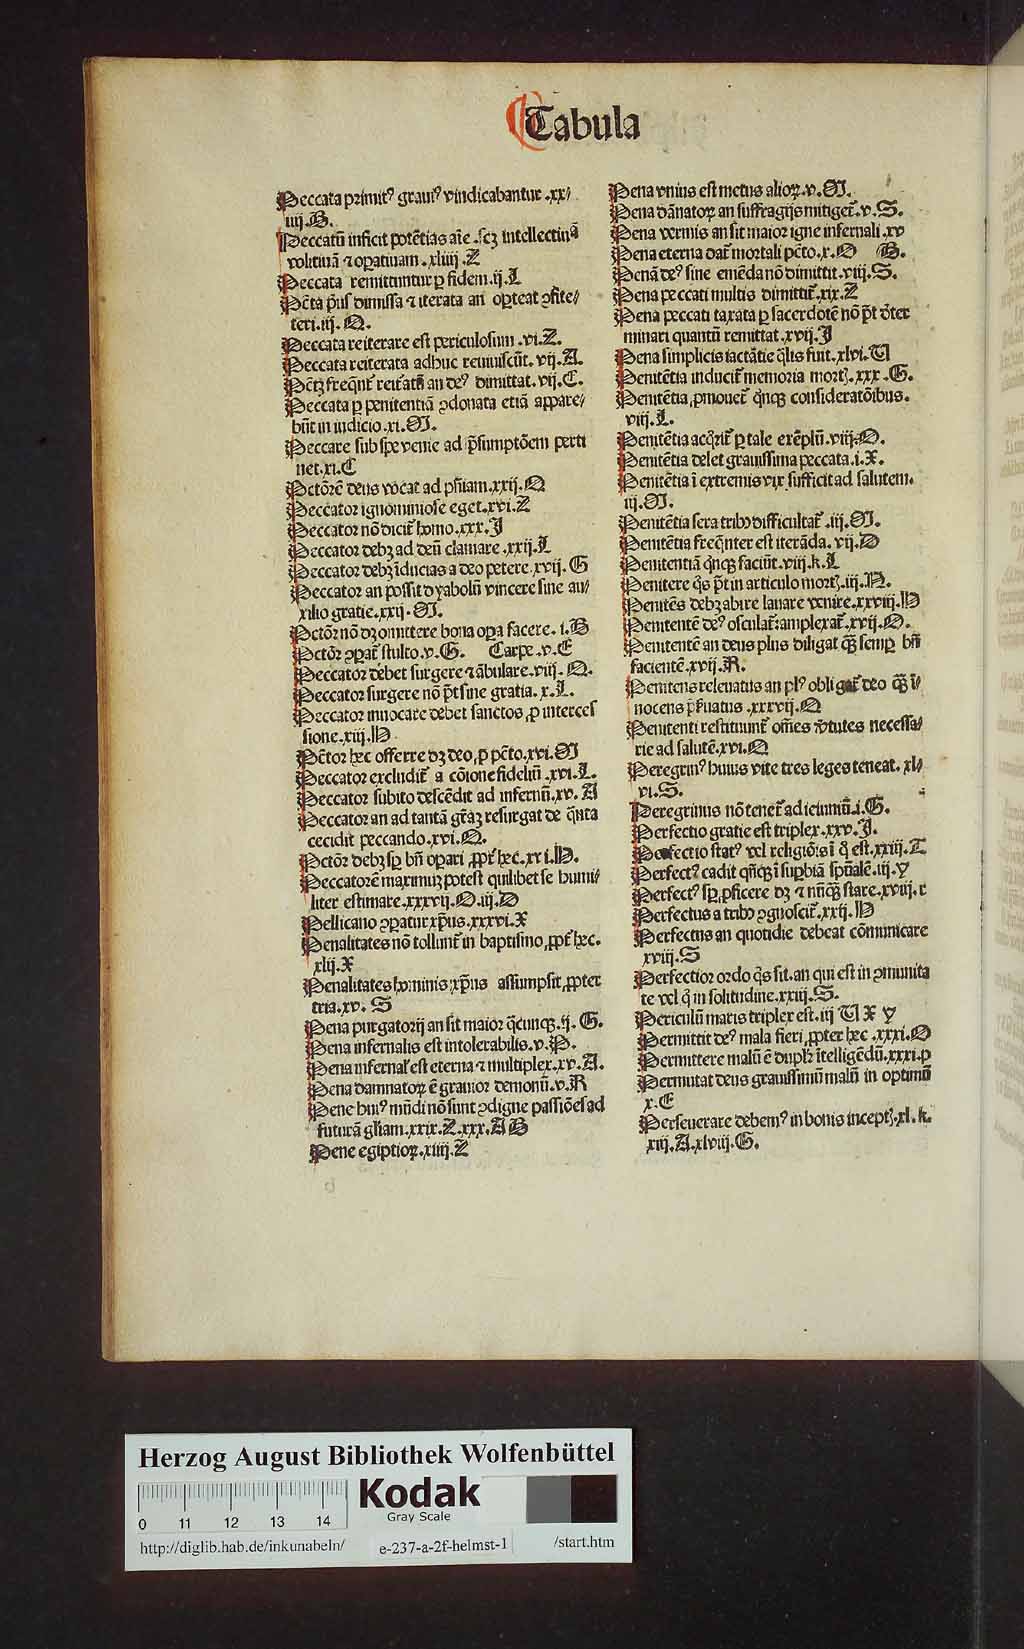 Tabula
Peccata primitꝰ grauiꝰ vindicabantur .xx/
iiij.B.
Peccatū inficit potētias aīe .scꝫ intellectiuā
volitiuā ⁊ oꝑatiuam .xliiij.Z
Peccata remittuntur ꝑ fidem.ij.L
Pctā pꝰus dimissa ⁊ iterata an oꝑteat ꝯfite/
teri.iij.Q.
Peccata reiterare est periculosum .vi.Z.
Peccata reiterata adhuc reuiuiscūt. vij.A.
an deꝰ dimittat. vij.C.
Peccata ꝑ penitentiā ꝯdonata etiā appare/
būt in iudicio .xi.M.
Peccare sub spe venie ad p̄sumptōem perti
net.xi.C
Pctōrē deus vocat ad pn̄iam.xxij.Q
Peccator ignominiose eget.xvi.Z
Peccator nō dicit᷑ homo.xxx.J
Peccator debꝫ ad deū clamare .xxij.L
Peccator debꝫ īducias a deo petere.xvij.G
Peccator an possit dyabolū vincere sine au/
xilio gratie.xxij.M.
Pctōr nō dꝫ omittere bona oꝑa facere. i.B
Pctōr ꝯꝑat᷑ stulto.v.G. Carpe .v.E
Peccator debet surgere ⁊ ābulare.viij.Q.
Peccator surgere nō pōt sine gratia. x.L.
Peccator inuocare debet sanctos, ꝓ interces
sione.xiij.D
Pctōr hec offerre dꝫ deo, ꝓ pctō.xvi.M
Peccator excludit᷑ a cōione fideliū .xvi.L.
Peccator subito descēdit ad infernū.xv.A
Peccator an ad tantā grāꝫ resurgat de q̄nta
cecidit peccando.xvi.Q.
Pctōr debꝫ sꝑ bn̄ oꝑari ,ꝓpt᷑ hec.xvi.D.
Peccatorē maximuꝫ potest quilibet se humi/
liter estimare.xxxvij.O.iij.D
Pellicano ꝯꝑatur xp̄us.xxxvi.X
Penalitates nō tollunt᷑ in baptismo, ꝓpt᷑ hec.
xlij.X
Penalitates hominis xp̄us assumpsit, ꝓpter
tria.xv. S
Pena purgatorij an sit maior q̄cunqꝫ.ij.G.
Pena infernalis est intolerabilis.v.P.
Pena infernaľ est eterna ⁊ multiplex.xv.A.
Pena damnatoꝝ ē grauior demonū.v.R
Pene huiꝰ mūdi nō sunt ꝯdigne passiōes ad
futurā gl̄iam.xxix.Z.xxx.A B
Pene egiptioꝝ.xiiij.Z
Pena vnius est metus alioꝝ.v.M.
Pena dānatoꝝ an suffragijs mitiget᷑.v.S.
Pena vermis an sit maior igne infernali.xv
Pena eterna dat᷑ mortali pctō.x.O B.
Penā deꝰ sine emēda nō dimittit.viij.S.
Pena peccati multis dimittit᷑.xix.Z
Pena peccati taxata ꝑ sacerdotē nō pōt
minari quantū remittat.xvij.J
Pena simplicis iactātie q̄lis fuit.xlvi.U
Penitētia inducit᷑ memoria mortꝭ.xxx.G.
Penitētia ,ꝓmouet᷑ q̄nqꝫ consideratōibus.
viij.L.
Penitētia acq̄rit᷑ ꝑ tale exēplū.viij.O.
Penitētia delet grauissima peccata.i.X.
Penitētia ī extremis vix sufficit ad salutem.
iij.M.
Penitētia sera tribꝰ difficultat᷑ .iij.M.
Penitētia freq̄nter est iterāda. vij.D
Penitentiā q̄nqꝫ faciūt.viij.k.L
Penitere q̄s pōt in articulo mortꝭ.iij.N.
Penitēs debꝫ abire lauare venire.xxviij.D
Penitentē deꝰ osculat᷑: amplexat᷑.xvij.Q.
Penitentē an deus plus diligat q̄ꝫ semꝑ bn̄
facientē.xvij.R.
Penitens releuatus an plꝰ obligat᷑ deo q̄ꝫ ī/
nocens .xxxvij.Q
Penitenti restituunt᷑ om̄es v̄tutes necessa/
rie ad salutē.xvi.Q
Peregrinꝰ huius vite tres leges teneat. xl/
vi.S.
Peregrinus nō tenet᷑ ad ieiuniū.i.G.
Perfectio gratie est triplex.xxv.J.
Perfectio statꝰ vel religiōis ī q̊ est.xxiij.T
Perfectꝰ cadit qn̄qꝫ ī suꝑbiā spūalē.iij.Y
Perfectꝰ sꝑ ,ꝓficere dꝫ ⁊ nūqꝫ stare.xviij.r
Perfectus a tribꝰ ꝯgnoscit᷑.xxij.D
Perfectus an quotidie debeat cōmunicare
xviij.S
Perfectior ordo q̄s sit.an qui est in ꝯmunita
te vel q̄ in solitudine.xxiij.S.
Periculū maris triplex est.iij U X Y
Permittit deꝰ mala fieri, ꝓpter hec .xxxi.O
Permittere malū ē duplꝭ ītelligēdū.xxxi.p
Permutat deus grauissimū malū in optimū
x.E
Perseuerare debemꝰ in bonis inceptꝭ.xl.k.
xiij.A.xlviij.G.
Herzog August Bibliothek Wolfenbüttel
Kodak
Gray Scale
0 11 12 13 14
http://diglib.hab.de/inkunabeln/ e-237-a-2f-helmst-1 /start.htm